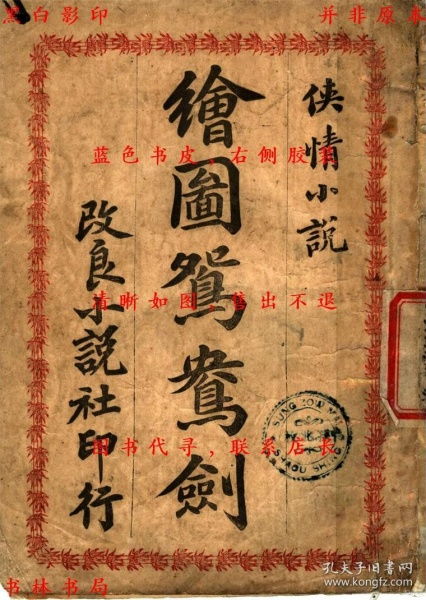 黑白影印
并非原本
侠情小說
繪圖鴛鴦劍
改良小說社印行
蓝色书皮，右侧胶装
清晰如图，售出不退
图书代寻，联系店长
书林书局
孔夫子旧书网
www.kongfz.com